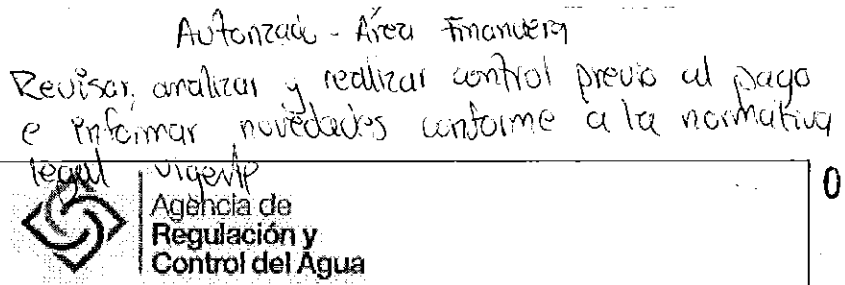 Autorizado - Área Financiera
Revisar, analizar y realizar control previo al pago
e informar novedades conforme a la normativa
legal vigente
0
Agencia de
Regulación y
Control del Agua